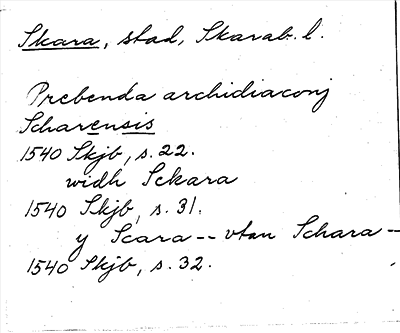 Skara, stad, Skarab. l.
Prebenda archidiaconj
Scharensis
1540 Skjb, s. 22.
widh Sckara
1540 Skjb, s. 31.
y Scara -- vtan Schara --
1540 Skjb, s. 32.